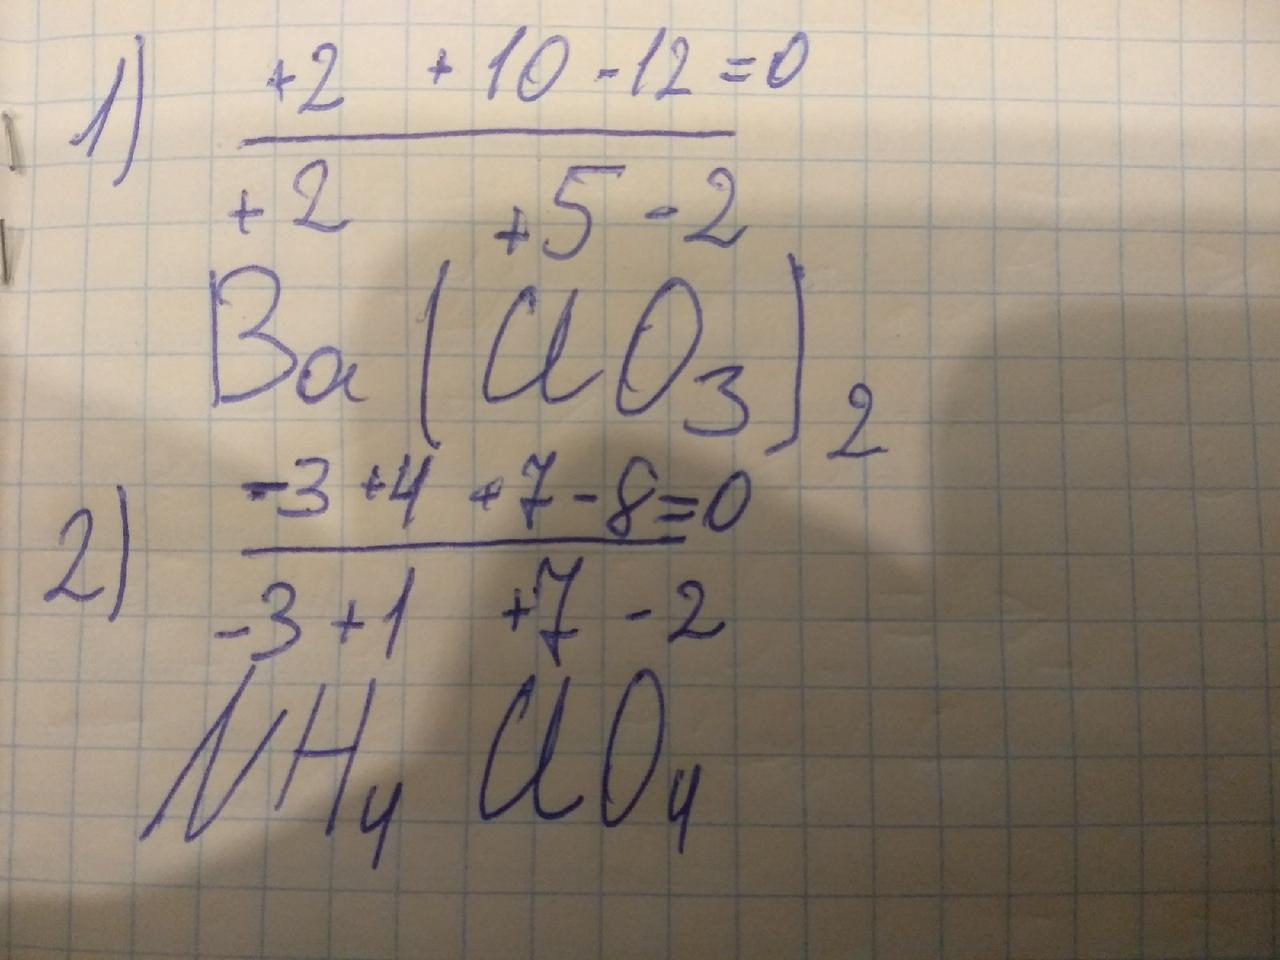 1) +2 +10 -12 = 0
+2 +5 -2
Ba(ClO3)2
2) -3 +4 +7 -8 = 0
-3 +1 +7 -2
NH4 ClO4